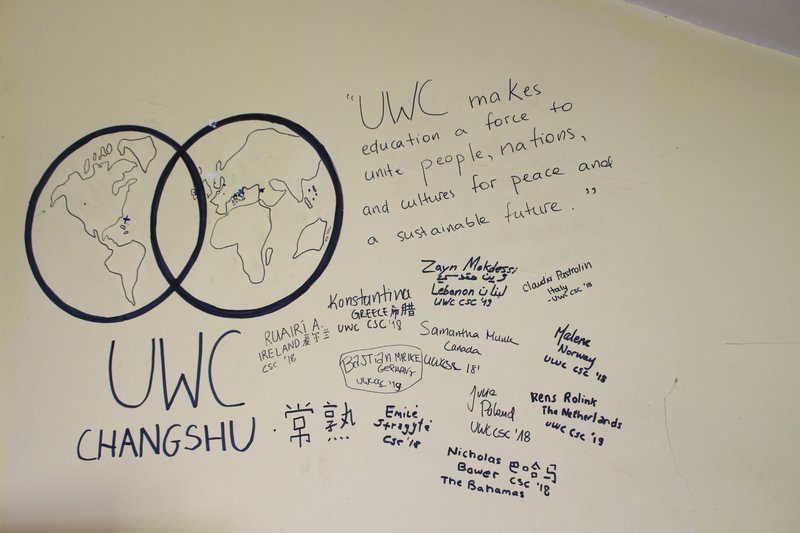 "UWC makes
education a force to
unite people, nations,
and cultures for peace and
a sustainable future."
UWC
CHANGSHU · 常熟
RUAIRÍ A.
IRELAND 爱尔兰
CSC '18
Konstantina
GREECE 希腊
UWC CSC '18
Zayn Mokdessi
Lebanon لبنان
UWC CSC '19
Claudia Pastrolin
Italy
-UWC CSC '18
BASTIAN MRIKE
GERMANY
UWCCSC '19
Samantha Munk
Canada
UWCCSC 18'
Malene
Norway
UWC CSC '18
Emilė
Stragytė
CSC '18
Julia
Poland
UWCCSC '18
Rens Rolink
The Netherlands
UWC CSC '19
Nicholas 巴哈马
Bower CSC '18
The Bahamas